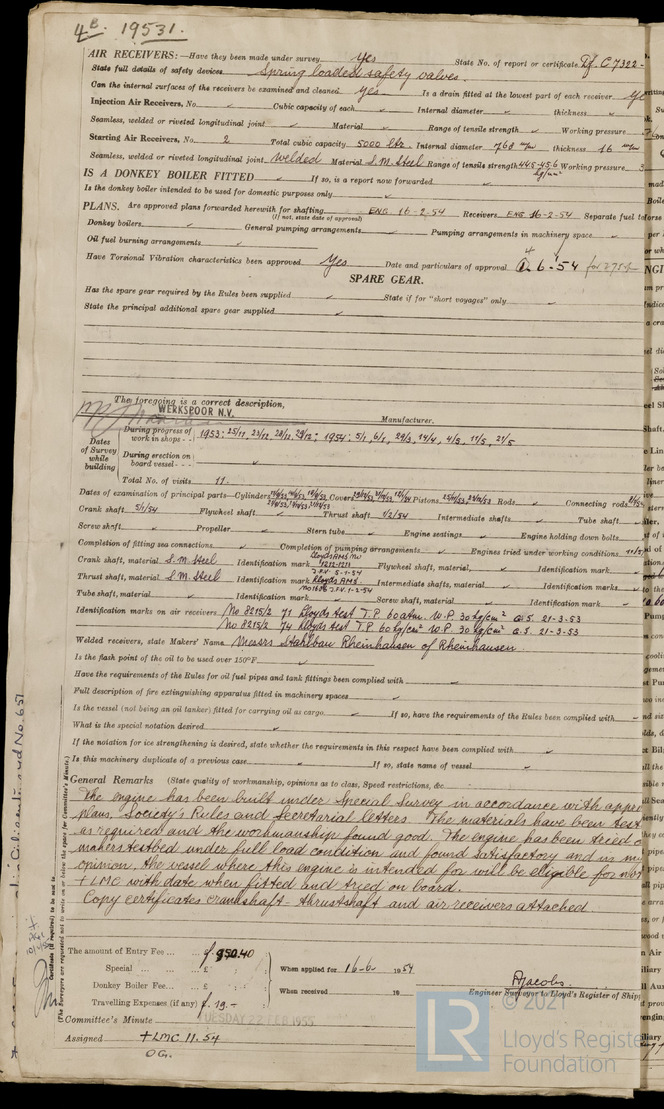 4B. 19531.
AIR RECEIVERS:—Have they been made under survey Yes State No. of report or certificate Df. C 7322-
State full details of safety devices Spring loaded safety valves.
Can the internal surfaces of the receivers be examined and cleaned Yes Is a drain fitted at the lowest part of each receiver Ye
Injection Air Receivers, No. ✓ Cubic capacity of each ✓ Internal diameter ✓ thickness ✓
Seamless, welded or riveted longitudinal joint ✓ Material ✓ Range of tensile strength ✓ Working pressure
Starting Air Receivers, No. 2 Total cubic capacity 5000 ltr. Internal diameter 768 m/m thickness 16 m/m
Seamless, welded or riveted longitudinal joint welded Material S.M. Steel Range of tensile strength 44.5-45.6 kg/mm² Working pressure 3
IS A DONKEY BOILER FITTED ✓ If so, is a report now forwarded ✓
Is the donkey boiler intended to be used for domestic purposes only ✓
PLANS. Are approved plans forwarded herewith for shafting ENG. 16-2-54 Receivers ENG. 16-2-54 Separate fuel t
(If not, state date of approval)
Donkey boilers ✓ General pumping arrangements ✓ Pumping arrangements in machinery space ✓
Oil fuel burning arrangements ✓
Have Torsional Vibration characteristics been approved Yes Date and particulars of approval 6-54
SPARE GEAR.
Has the spare gear required by the Rules been supplied ✓ State if for "short voyages" only ✓
State the principal additional spare gear supplied ✓
The foregoing is a correct description,
WERKSPOOR N.V. Manufacturer.
Dates of Survey while building
During progress of work in shops - - 1953: 25/11, 23/12, 28/12, 29/12; 1954: 5/1, 6/1, 29/3, 14/4, 4/3, 11/5, 21/5
During erection on board vessel - - - ✓
Total No. of visits 11.
Dates of examination of principal parts—Cylinders Covers Pistons Rods ✓ Connecting rods
Crank shaft 5/1/54 Flywheel shaft ✓ Thrust shaft 1/2/54 Intermediate shafts ✓ Tube shaft ✓
Screw shaft ✓ Propeller ✓ Stern tube ✓ Engine seatings ✓ Engine holding down bolts ✓
Completion of fitting sea connections ✓ Completion of pumping arrangements ✓ Engines tried under working conditions 11/5
Crank shaft, material S.M. Steel Identification mark Lloyds AMS No Flywheel shaft, material ✓ Identification mark ✓
Thrust shaft, material S.M. Steel Identification mark Lloyds AMS Intermediate shafts, material ✓ Identification marks ✓
Tube shaft, material ✓ Identification mark ✓ Screw shaft, material ✓ Identification mark ✓
Identification marks on air receivers No 8215/2 71 Lloyds test T.P. 60 atm. W.P. 30 kg/cm² a.S. 21-3-53
No 8215/2 74 Lloyds test T.P. 60 kg/cm² W.P. 30 kg/cm² a.S. 21-3-53
Welded receivers, state Makers' Name Messrs Stahlbau Rheinhausen of Rheinhausen.
Is the flash point of the oil to be used over 150°F. ✓
Have the requirements of the Rules for oil fuel pipes and tank fittings been complied with ✓
Full description of fire extinguishing apparatus fitted in machinery spaces ✓
Is the vessel (not being an oil tanker) fitted for carrying oil as cargo ✓ If so, have the requirements of the Rules been complied with
What is the special notation desired ✓
If the notation for ice strengthening is desired, state whether the requirements in this respect have been complied with ✓
Is this machinery duplicate of a previous case ✓ If so, state name of vessel ✓
General Remarks (State quality of workmanship, opinions as to class, Speed restrictions, &c.
The engine has been built under Special Survey in accordance with appr
plans, Society's Rules and Secretarial letters. The materials have been test
as required and the workmanship found good. The engine has been tried o
makers testbed under full load condition and found satisfactory and in my
opinion, the vessel where this engine is intended for will be eligible for not
+LMC with date when fitted and tried on board.
Copy certificates crankshaft - thrustshaft and air receivers attached.
The amount of Entry Fee ... £ 950.40
Special ... ... £ : : When applied for 16-6- 1954
Donkey Boiler Fee... £ : :
Travelling Expenses (if any) £ 19.- : When received 19
AJacobs.
Engineer Surveyor to Lloyd's Register of Ship
Committee's Minute TUESDAY 22 FEB 1955
Assigned +LMC 11.54
OG.
(The Surveyors are requested not to write on or below the space for Committee's Minute.)
© 2021
LR
Lloyd's Registe
Foundation